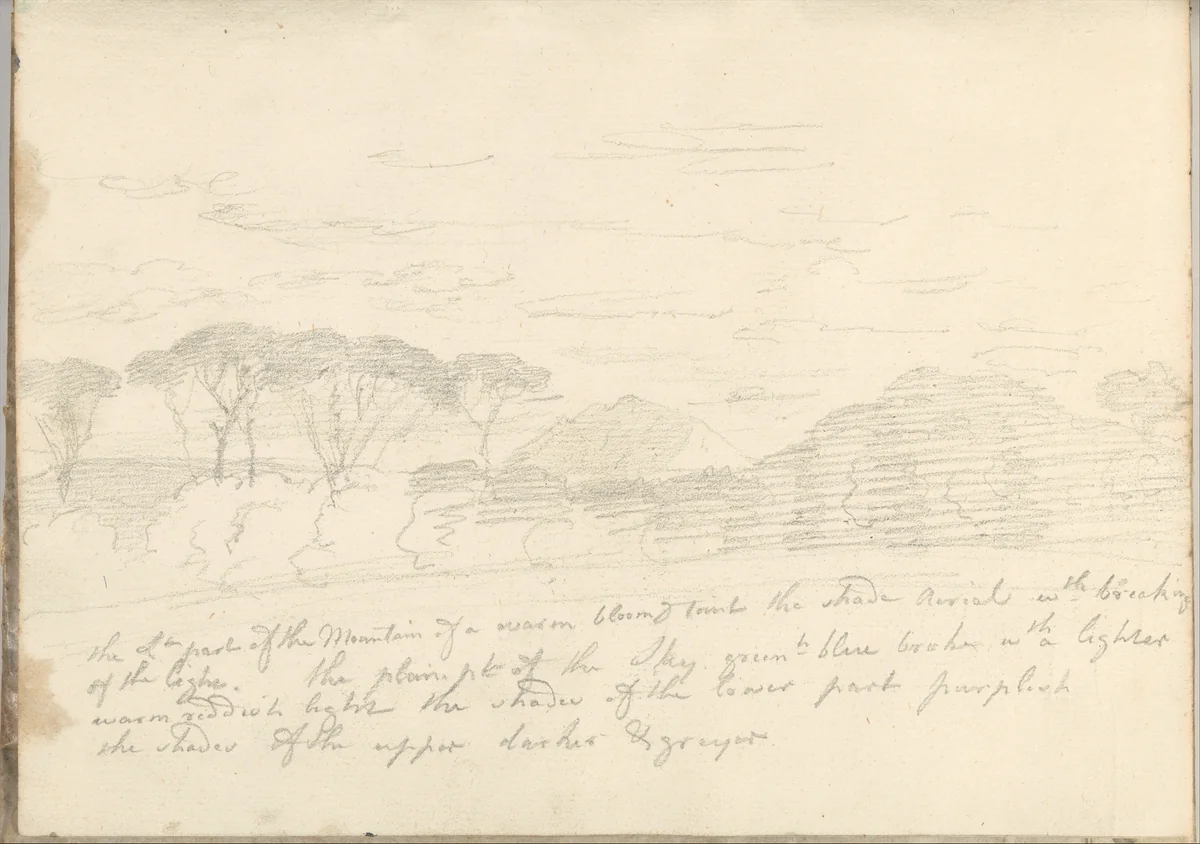 the Lt part of the Mountain of a warm bloomy taint the shade Aerial wth breaking
of the light. the plain pt of the Sky greenh blue broke wth a lighter
warm reddish light the shades of the lower part purplish
the shades of the upper darker & greyer.